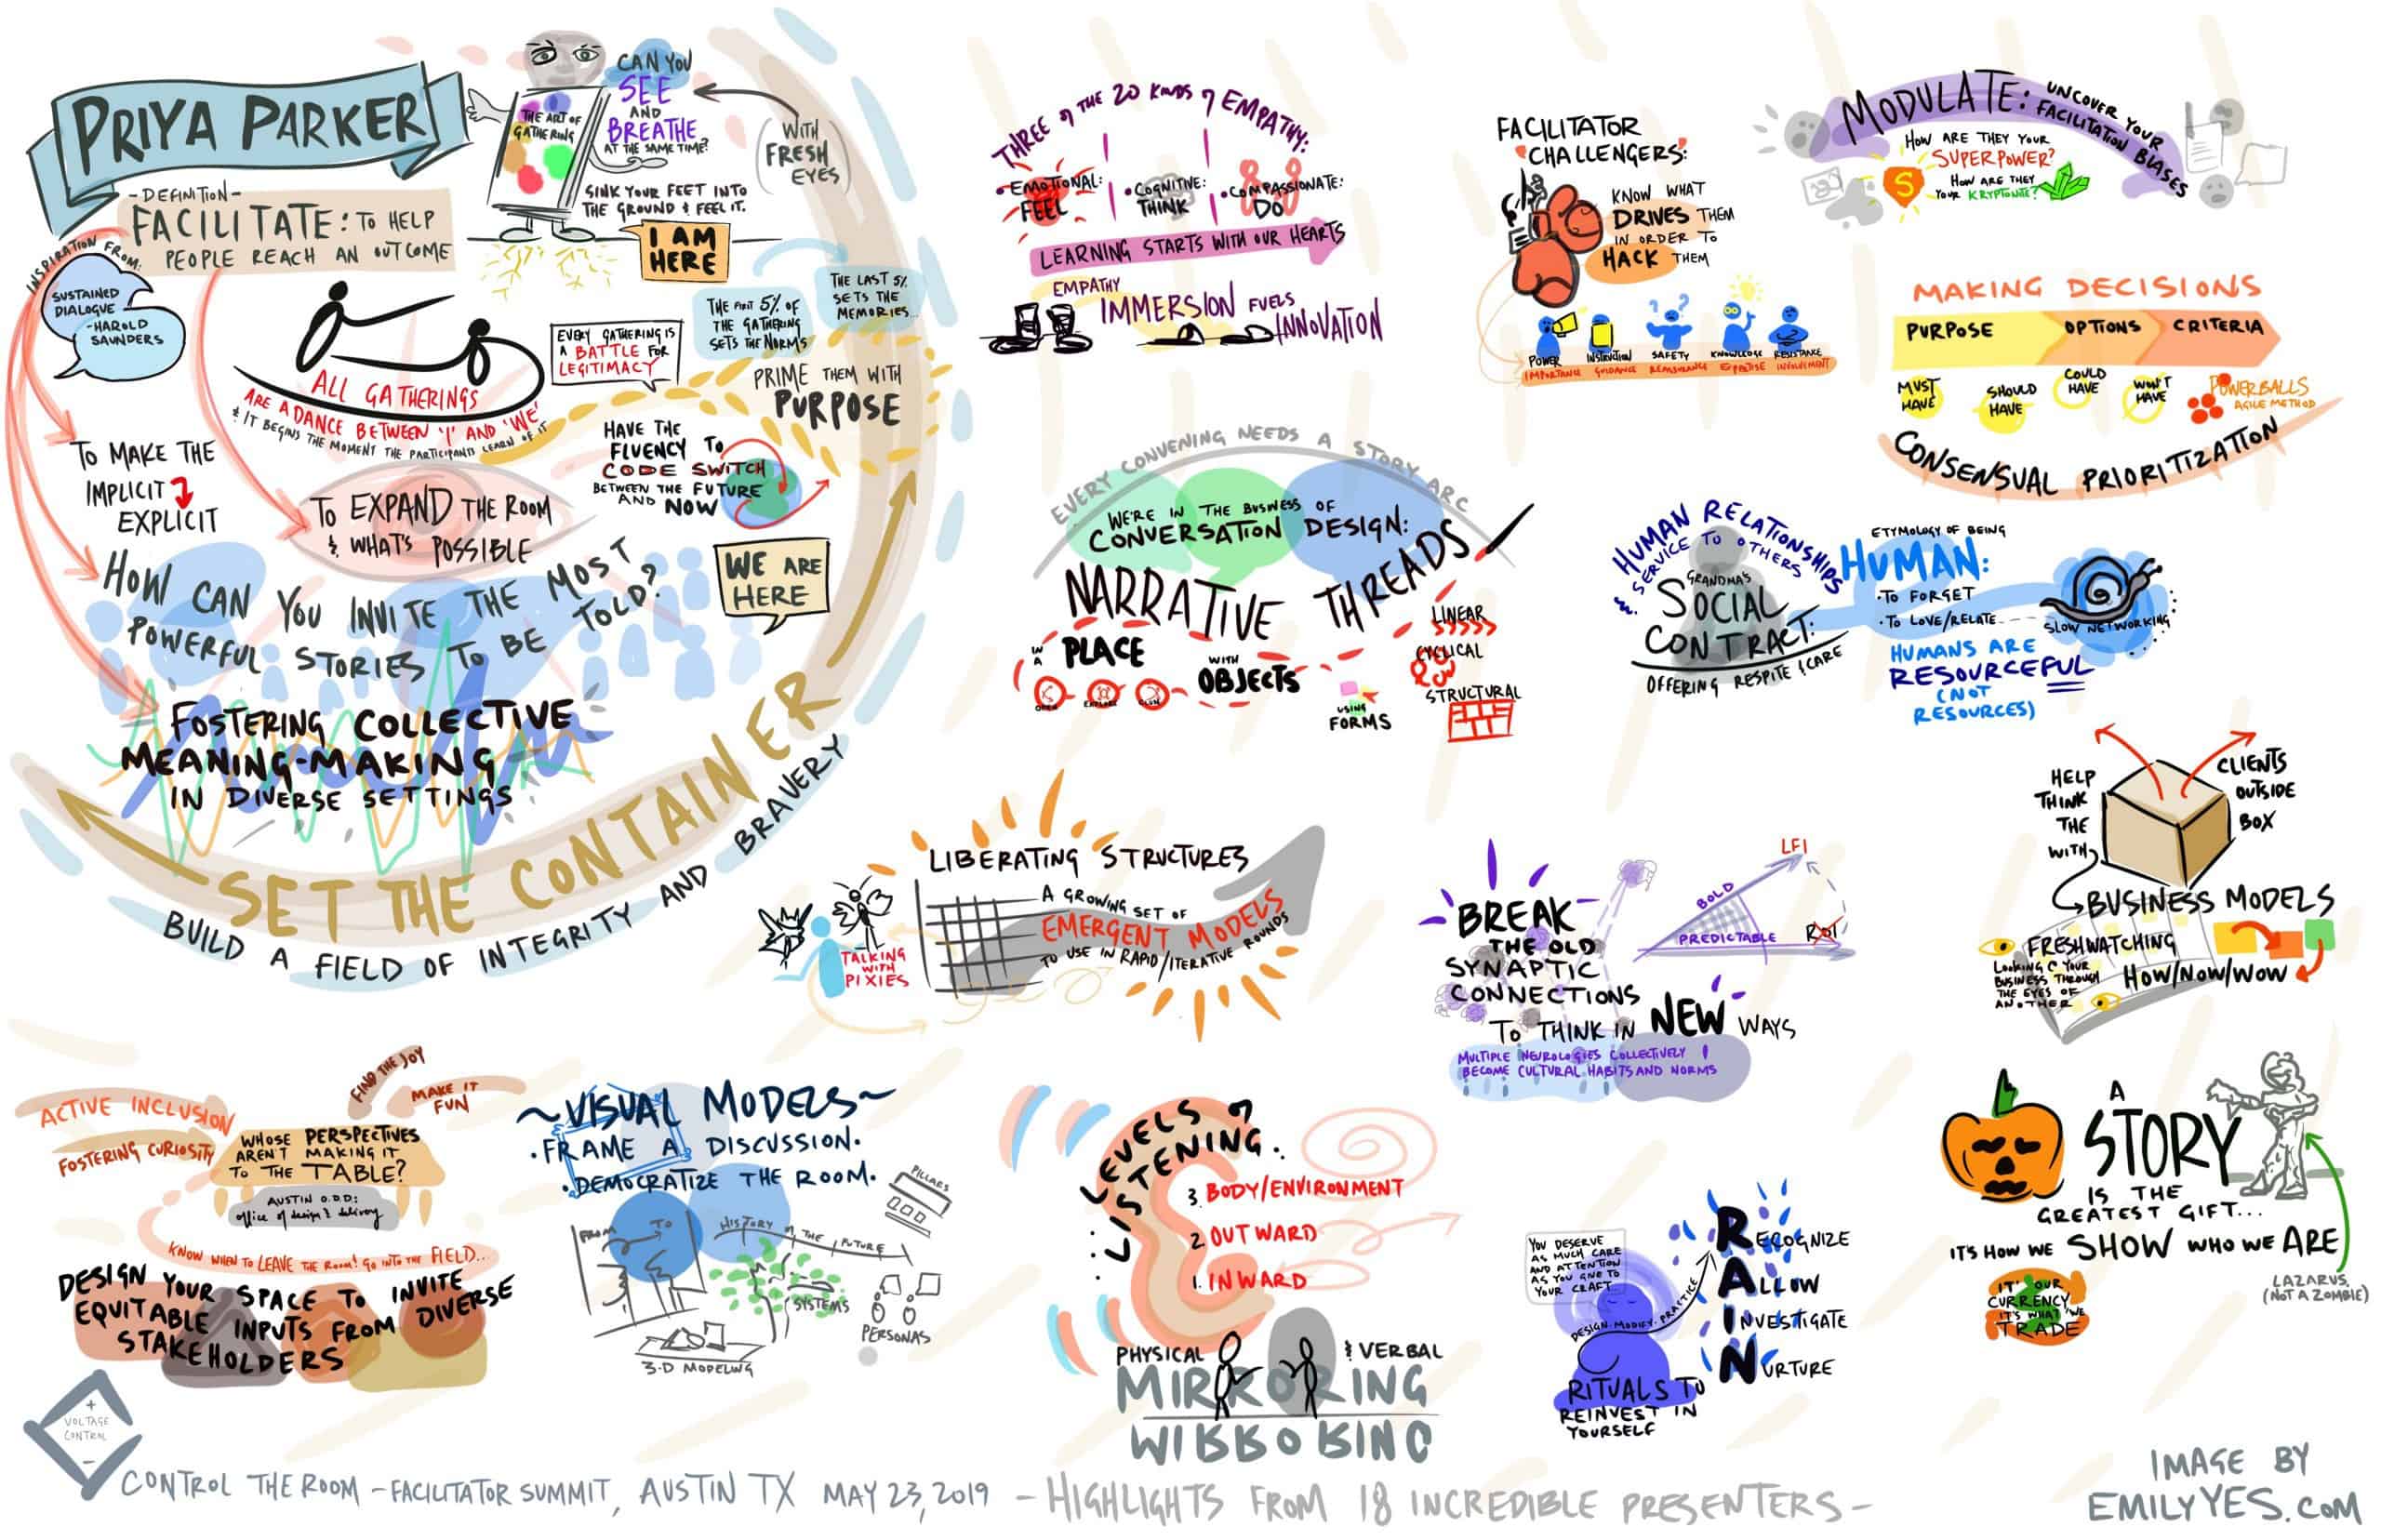 PRIYA PARKER
THE ART OF
GATHERING
CAN YOU
SEE
AND
BREATHE
AT THE SAME TIME?
(WITH
FRESH
EYES)
SINK YOUR FEET INTO
THE GROUND & FEEL IT.
I AM
HERE
-DEFINITION-
FACILITATE: TO HELP
PEOPLE REACH AN OUTCOME
INSPIRATION FROM:
SUSTAINED
DIALOGUE
-HAROLD
SAUNDERS
ALL GATHERINGS
ARE A DANCE BETWEEN 'I' AND 'WE'
& IT BEGINS THE MOMENT THE PARTICIPANTS LEARN OF IT
EVERY GATHERING IS
A BATTLE FOR
LEGITIMACY
THE FIRST 5% OF
THE GATHERING
SETS THE NORMS
THE LAST 5%
SETS THE
MEMORIES...
PRIME THEM WITH
PURPOSE
HAVE THE
FLUENCY TO
CODE SWITCH
BETWEEN THE FUTURE
AND NOW
TO MAKE THE
IMPLICIT
EXPLICIT
TO EXPAND THE ROOM
& WHAT'S POSSIBLE
WE ARE
HERE
HOW CAN YOU INVITE THE MOST
POWERFUL STORIES TO BE TOLD?
FOSTERING COLLECTIVE
MEANING-MAKING
IN DIVERSE SETTINGS
SET THE CONTAINER
BUILD A FIELD OF INTEGRITY AND BRAVERY
THREE OF THE 20 KINDS OF EMPATHY:
• EMOTIONAL:
FEEL
• COGNITIVE:
THINK
• COMPASSIONATE:
DO
LEARNING STARTS WITH OUR HEARTS
EMPATHY
IMMERSION FUELS
INNOVATION
FACILITATOR
CHALLENGERS:
KNOW WHAT
DRIVES THEM
IN ORDER TO
HACK THEM
POWER
INSTRUCTION
SAFETY
KNOWLEDGE
RESISTANCE
IMPORTANCE
GUIDANCE
REASSURANCE
EXPERTISE
INVOLVEMENT
MODULATE: UNCOVER YOUR
FACILITATION BIASES
HOW ARE THEY YOUR
SUPERPOWER?
S
HOW ARE THEY
YOUR KRYPTONITE?
MAKING DECISIONS
PURPOSE
OPTIONS
CRITERIA
MUST
HAVE
SHOULD
HAVE
COULD
HAVE
WON'T
HAVE
POWERBALLS
AGILE METHOD
CONSENSUAL PRIORITIZATION
EVERY CONVENING NEEDS A STORY ARC
WE'RE IN THE BUSINESS OF
CONVERSATION DESIGN:
NARRATIVE THREADS
IN
A
PLACE
OPEN
EXPLORE
WITH
OBJECTS
USING
FORMS
LINEAR
CYCLICAL
STRUCTURAL
HUMAN RELATIONSHIPS
SERVICE TO OTHERS
GRANDMA'S
SOCIAL
CONTRACT:
OFFERING RESPITE & CARE
ETYMOLOGY OF BEING
HUMAN:
• TO FORGET
• TO LOVE/RELATE
SLOW NETWORKING
HUMANS ARE
RESOURCEFUL
(NOT
RESOURCES)
LIBERATING STRUCTURES
A GROWING SET OF
EMERGENT MODELS
TO USE IN RAPID/ITERATIVE ROUNDS
TALKING
WITH
PIXIES
BREAK
THE OLD
SYNAPTIC
CONNECTIONS
TO THINK IN NEW WAYS
MULTIPLE NEUROLOGIES COLLECTIVELY
BECOME CULTURAL HABITS AND NORMS
LFI
BOLD
PREDICTABLE
ROI
HELP
THINK
THE
WITH
CLIENTS
OUTSIDE
BOX
BUSINESS MODELS
FRESHWATCHING
LOOKING @ YOUR
BUSINESS THROUGH
THE EYES OF
ANOTHER
HOW/NOW/WOW
ACTIVE INCLUSION
FOSTERING CURIOSITY
FIND THE JOY
MAKE IT
FUN
WHOSE PERSPECTIVES
AREN'T MAKING IT
TO THE TABLE?
AUSTIN O.D.D:
office of design & delivery
KNOW WHEN TO LEAVE THE ROOM! GO INTO THE FIELD...
DESIGN YOUR SPACE TO INVITE
EQUITABLE INPUTS FROM DIVERSE
STAKEHOLDERS
~VISUAL MODELS~
• FRAME A DISCUSSION.
• DEMOCRATIZE THE ROOM.
FROM
TO
HISTORY OF THE FUTURE
PILLARS
SYSTEMS
PERSONAS
3-D MODELING
LEVELS OF
LISTENING
3. BODY/ENVIRONMENT
2. OUTWARD
1. INWARD
PHYSICAL
& VERBAL
MIRRORING
YOU DESERVE
AS MUCH CARE
AND ATTENTION
AS YOU GIVE TO
YOUR CRAFT
DESIGN. MODIFY. PRACTICE
RECOGNIZE
ALLOW
INVESTIGATE
NURTURE
RITUALS TO
REINVEST IN
YOURSELF
A
STORY
IS THE
GREATEST GIFT...
IT'S HOW WE SHOW WHO WE ARE
IT'S OUR
CURRENCY
IT'S WHAT WE
TRADE
LAZARUS.
(NOT A ZOMBIE)
+
VOLTAGE
CONTROL
-
CONTROL THE ROOM - FACILITATOR SUMMIT, AUSTIN TX MAY 23, 2019 - HIGHLIGHTS FROM 18 INCREDIBLE PRESENTERS -
IMAGE BY
EMILYYES.COM